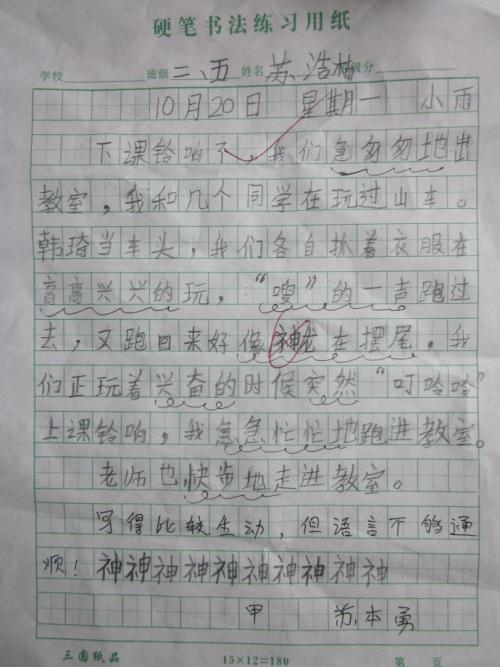 硬笔书法练习用纸
学校 班级 二、五 姓名 苏浩楠 级分
10月20日 星期一 小雨
下课铃响了,我们急匆匆地出
教室,我和几个同学在玩过山车。
韩琦当车头,我们各自扒着衣服在
高高兴兴的玩,“嗖”的一声跑过
去,又跑回来好像神龙在摆尾。我
们正玩着兴奋的时候突然“叮哈哈”
上课铃响,我急急忙忙地跑进教室。
老师也快步地走进教室。
写得比较生动,但语言不够通
顺!神神神神神神神神神神
甲 苏本勇
三圆纸品 15×12=180 第 页